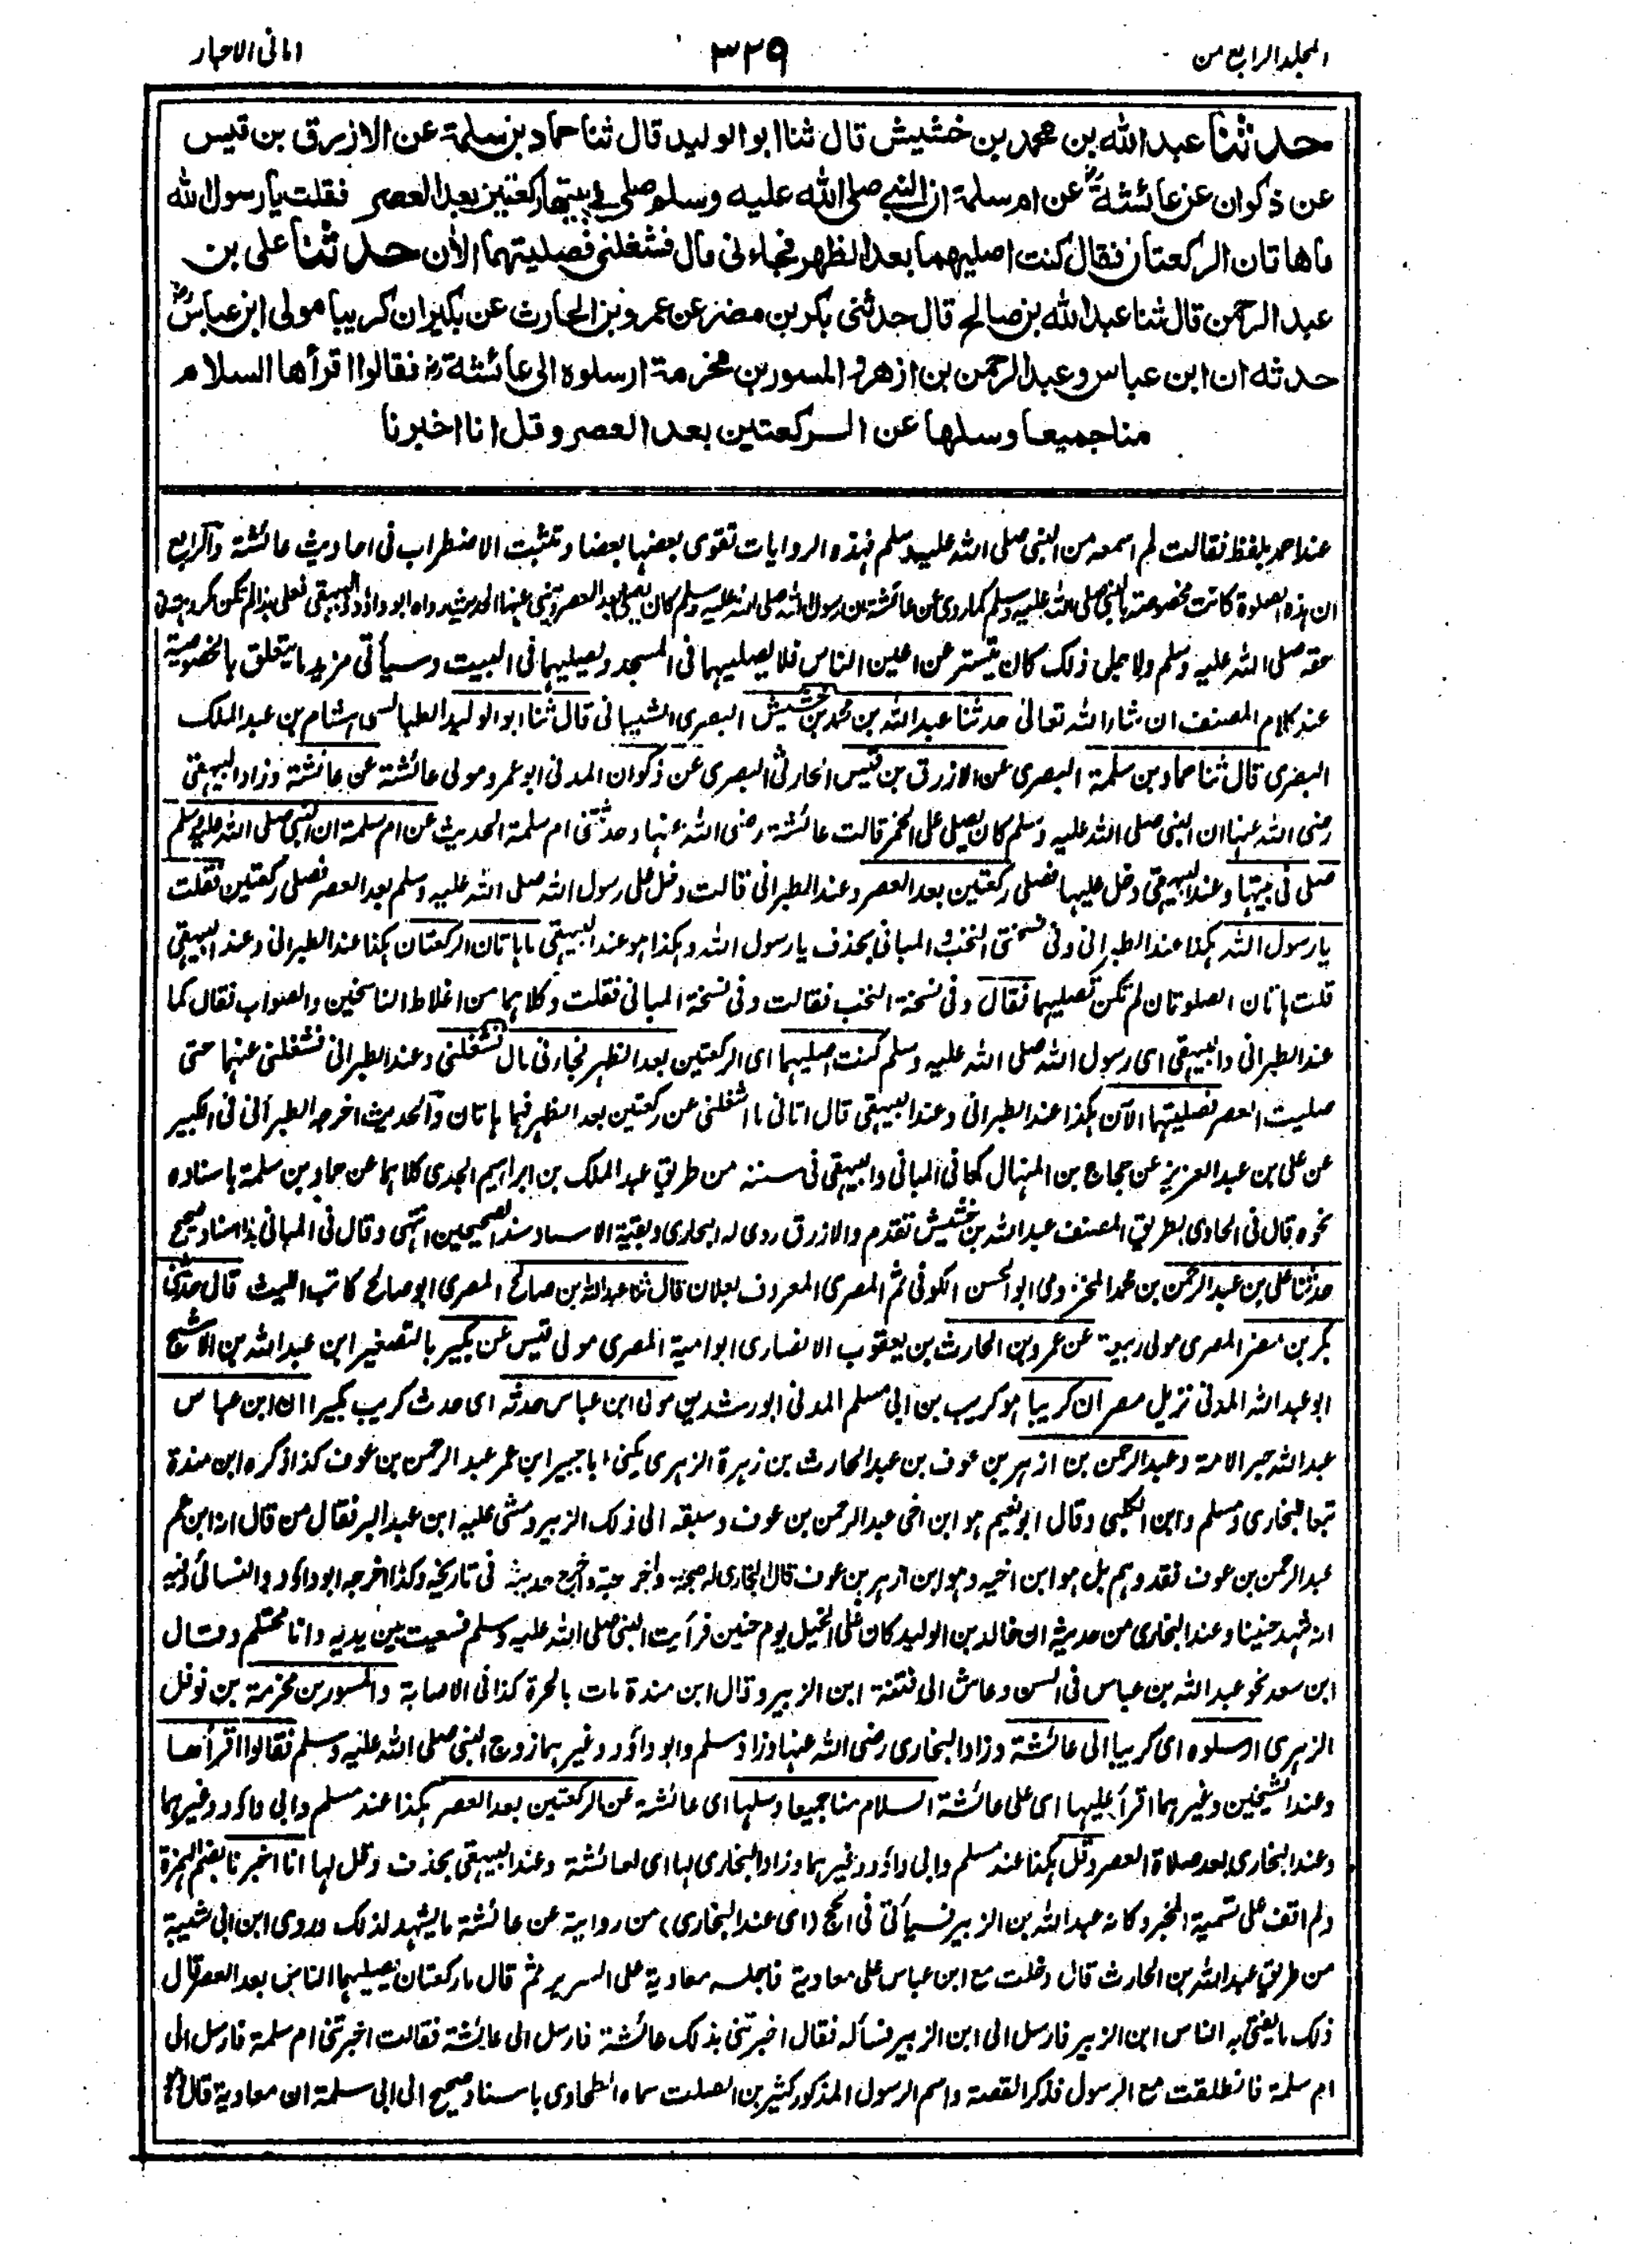 المجلد الرابع من
٣٢٩
امانی الاحبار
حدثنا عبد الله بن محمد بن خشيش قال ثنا ابو الوليد قال ثنا حماد بن سلمة عن الازرق بن قيس
عن ذكوان عن عائشة رض عن ام سلمة ان النبي صلى الله عليه وسلم صلى في بيتها ركعتين بعد العصر فقلت يا رسول الله
ما هاتان الركعتان فقال كنت اصليهما بعد الظهر فجاءنی مال فشغلنی فصليتهما الأن حدثنا علی بن
عبد الرحمن قال ثنا عبد الله بن صالح قال حدثنی بكر بن مضر عن عمرو بن الحارث عن بكير ان كريبا مولی ابن عباس رض
حدثه ان ابن عباس وعبد الرحمن بن ازهر و المسور بن مخرمة ارسلوه الی عائشة رض فقالوا اقرأها السلام
منا جميعا وسلها عن الركعتين بعد العصر وقل انا اخبرنا
عند احمد بلفظ فقالت لم اسمعه من النبی صلی الله علیه وسلم فهذه الروایات تقوی بعضها بعضا و تثبت الاضطراب فی احادیث عائشة والرابع
ان هذه الصلوة كانت مخصوصة بالنبی صلی الله علیه وسلم كما روی عن عائشة ان رسول الله صلی الله علیه وسلم كان یصلی بعد العصر وینهی عنها الحدیث رواه ابو داؤد والبیهقی فعلی هذا لم تكن مكروهة فی
حقه صلی الله علیه وسلم ولاجل ذلك كان یتستر عن اعین الناس فلا یصلیهما فی المسجد ویصلیهما فی البیت وسیأتی مزید ما یتعلق بالخصوصیة
عند كلام المصنف ان شاء الله تعالی حدثنا عبد الله بن محمد بن خشیش البصری الشیبانی قال ثنا ابو الولید الطیالسی هشام بن عبد الملك
البصری قال ثنا حماد بن سلمة البصری عن الازرق بن قیس الحارثی البصری عن ذكوان المدنی ابو عمرو مولی عائشة عن عائشة وزاد البیهقی
رضی الله عنها ان النبی صلی الله علیه وسلم كان یصلی علی الخمر قالت عائشة رضی الله عنها وحدثتنی ام سلمة الحدیث عن ام سلمة ان النبی صلی الله علیه وسلم
صلی فی بیتها وعند البیهقی دخل علیها فصلی ركعتین بعد العصر وعند الطبرانی قالت دخل علی رسول الله صلی الله علیه وسلم بعد العصر فصلی ركعتین فقلت
یا رسول الله هكذا عند الطبرانی وفی نسختی النخب و المبانی بحذف یا رسول الله وهكذا هو عند البیهقی ما هاتان الركعتان هكذا عند الطبرانی وعند البیهقی
قلت هاتان الصلوتان لم تكن تصلیهما فقال وفی نسخة النخب فقالت وفی نسخة المبانی فقلت وكلاهما من اغلاط الناسخین والصواب فقال كما
عند الطبرانی والبیهقی ای رسول الله صلی الله علیه وسلم كنت اصلیهما ای الركعتین بعد الظهر فجاءنی مال فشغلنی وعند الطبرانی فشغلنی عنهما حتی
صلیت العصر فصلیتهما الآن هكذا عند الطبرانی وعند البیهقی قال اتانی ما اشغلنی عن ركعتین بعد الظهر فهما هاتان والحدیث اخرجه الطبرانی فی الكبیر
عن علی بن عبد العزیز عن حجاج بن المنهال كما فی المبانی والبیهقی فی سننه من طریق عبد الملك بن ابراهیم الجدی كلاهما عن حماد بن سلمة باسناده
نحوه قال فی الحاوی بطریق المصنف عبد الله بن خشیش تقدم والازرق روی له البخاری وبقیة الاسناد سند الصحیحین انتهی وقال فی المبانی هذا اسناد صحیح
حدثنا علی بن عبد الرحمن بن محمد المخزومی ابو الحسن الكوفی ثم المصری المعروف بعلان قال ثنا عبد الله بن صالح المصری ابو صالح كاتب اللیث قال حدثنی
بكر بن مضر المصری مولی ربیعة عن عمرو بن الحارث بن یعقوب الانصاری ابو امیة المصری مولی قیس عن بكیر بالتصغیر ابن عبد الله بن الاشج
ابو عبد الله المدنی نزیل مصر ان كریبا هو كریب بن ابی مسلم المدنی ابو رشدین مولی ابن عباس حدثه ای حدث كریب بكیرا ان ابن عباس
عبد الله حبر الامة وعبد الرحمن بن ازهر بن عوف بن عبد الحارث بن زهرة الزهری یكنی ابا جبیر ابن عم عبد الرحمن بن عوف كذا ذكره ابن مندة
تبعا للبخاری ومسلم وابن الكلبی وقال ابو نعیم هو ابن اخی عبد الرحمن بن عوف وسبقه الی ذلك الزبیر ومشی علیه ابن عبد البر فقال من قال انه ابن عم
عبد الرحمن بن عوف فقد وهم بل هو ابن اخیه وهو ابن ازهر بن عوف قال البخاری له صحبة واخرج حدیثه فی تاریخه وكذا اخرجه ابو داؤد والنسائی وفیه
انه شهد حنینا وعند البخاری من حدیثه ان خالد بن الولید كان علی الخیل یوم حنین فرأیت النبی صلی الله علیه وسلم فسعیت بین یدیه وانا محتلم وقال
ابن سعد نحو عبد الله بن عباس فی السن وعاش الی فتنة ابن الزبیر وقال ابن مندة مات بالحرة كذا فی الاصابة والمسور بن مخرمة بن نوفل
الزهری ارسلوه ای كریبا الی عائشة وزاد البخاری رضی الله عنها وزاد مسلم وابو داؤد وغیرهما زوج النبی صلی الله علیه وسلم فقالوا اقرأها
وعند الشیخین وغیرهما اقرأ علیها ای علی عائشة السلام منا جمیعا وسلها ای عائشة عن الركعتین بعد العصر هكذا عند مسلم وابی داؤد وغیرهما
وعند البخاری بعد صلاة العصر وقل هكذا عند مسلم وابی داؤد وغیرهما وزاد البخاری لها ای لعائشة وعند البیهقی بحذف وقل لها انا اخبرنا بضم الهمزة
ولم اقف علی تسمیة المخبر وكانه عبد الله بن الزبیر فسیأتی فی الحج (ای عند البخاری) من روایة عن عائشة ما یشهد لذلك وروی ابن ابی شیبة
من طریق عبد الله بن الحارث قال دخلت مع ابن عباس علی معاویة فاجلسه معاویة علی السریر ثم قال ما ركعتان یصلیهما الناس بعد العصر قال
ذلك ما یفتی به الناس ابن الزبیر فارسل الی ابن الزبیر فسأله فقال اخبرتنی بذلك عائشة فارسل الی عائشة فقالت اخبرتنی ام سلمة فارسل الی
ام سلمة فانطلقت مع الرسول فذكر القصة واسم الرسول المذكور كثیر بن الصلت سماه الطحاوی باسناد صحیح الی ابی سلمة ان معاویة قال